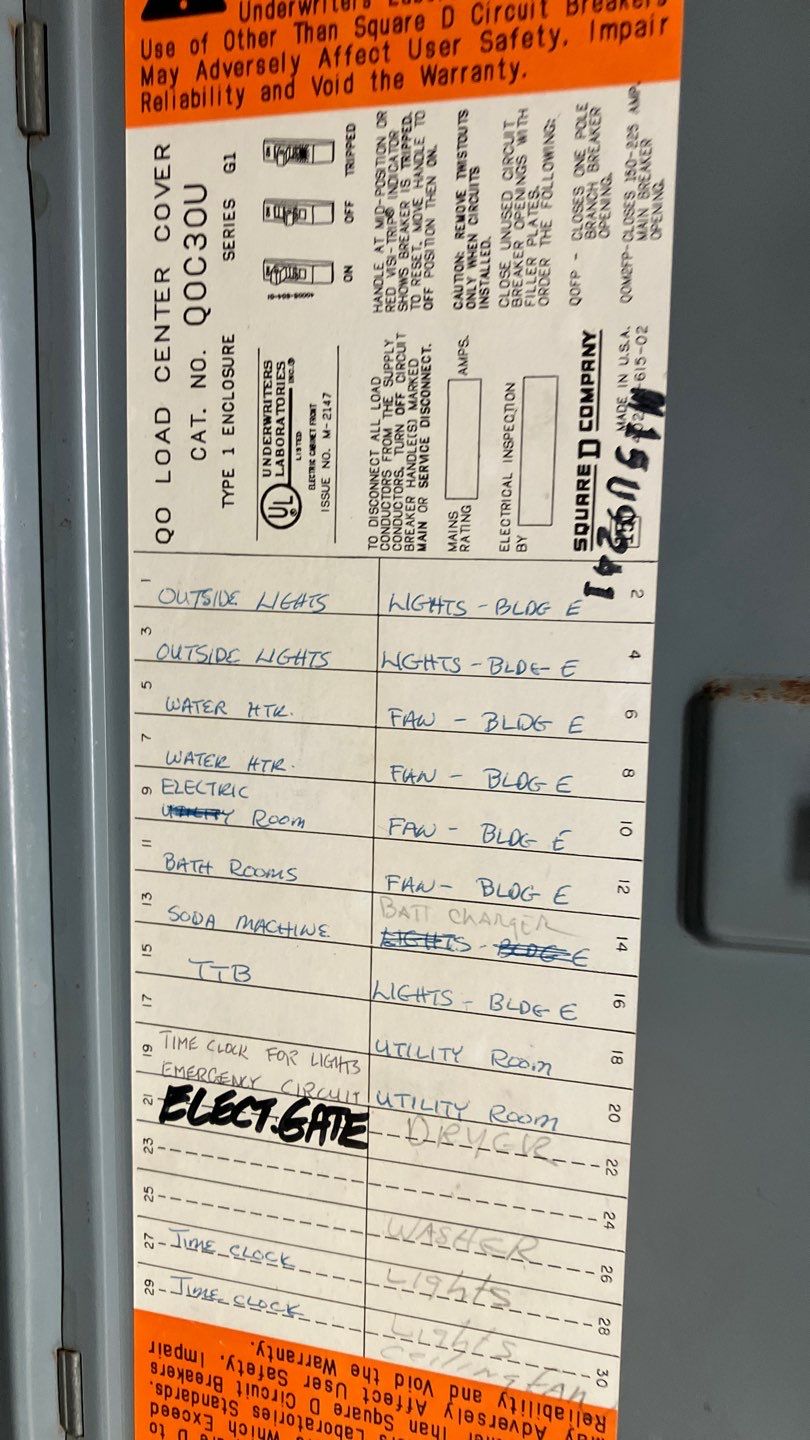 Use of Other Than Square D Circuit Breakers
May Adversely Affect User Safety, Impair
Reliability and Void the Warranty.
QO LOAD CENTER COVER
CAT. NO. QOC30U
TYPE 1 ENCLOSURE SERIES G1
UL
UNDERWRITERS
LABORATORIES
INC.®
LISTED
ELECTRIC CABINET FRONT
ISSUE NO. M-2147
ON
OFF
TRIPPED
TO DISCONNECT ALL LOAD
CONDUCTORS FROM THE SUPPLY
CONDUCTORS, TURN OFF CIRCUIT
BREAKER HANDLE(S) MARKED
MAIN OR SERVICE DISCONNECT.
HANDLE AT MID-POSITION OR
RED VISI-TRIP® INDICATOR
SHOWS BREAKER IS TRIPPED.
TO RESET, MOVE HANDLE TO
OFF POSITION THEN ON.
MAINS
RATING
AMPS.
CAUTION: REMOVE TWISTOUTS
ONLY WHEN CIRCUITS
INSTALLED.
ELECTRICAL INSPECTION
BY
CLOSE UNUSED CIRCUIT
BREAKER OPENINGS WITH
FILLER PLATES.
ORDER THE FOLLOWING:
QOFP - CLOSES ONE POLE
BRANCH BREAKER
OPENING.
QOM2FP-CLOSES 150-225 AMP.
MAIN BREAKER
OPENING.
SQUARE D COMPANY
MADE IN U.S.A.
615-02
1 OUTSIDE LIGHTS
LIGHTS - BLDG E 2
3 OUTSIDE LIGHTS
LIGHTS - BLDG E 4
5 WATER HTR.
FAN - BLDG E 6
7 WATER HTR.
FAN - BLDG E 8
9 ELECTRIC
UTILITY ROOM
FAN - BLDG E 10
11 BATH ROOMS
FAN - BLDG E 12
13 SODA MACHINE
BATT CHARGER
LIGHTS - BLDG E 14
15 TTB
LIGHTS - BLDG E 16
17
UTILITY ROOM 18
19 TIME CLOCK FOR LIGHTS
EMERGENCY CIRCUIT
UTILITY ROOM 20
21 ELECT. GATE
DRYER 22
23
24
25
WASHER 26
27 TIME CLOCK
Lights 28
29 TIME CLOCK
Lights
Ceiling FAN 30
Reliability and Void the Warranty.
May Adversely Affect User Safety, Impair